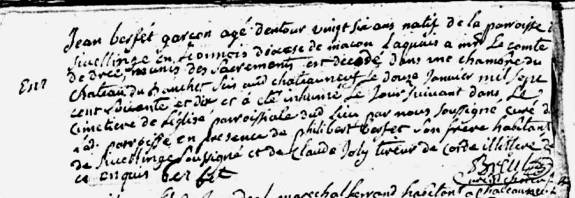 Jean berfet garçon agé dentour vingt six ans natif de la parroisse
Ent
de nuellinge en Lionnois diocese de macon Laquais a mr Le comte
de Dree, munis des sacrements est decedé dans une chambre du
chateau du Banchet sis aud chateauneuf Le douze Janvier mil sept
cent soixante et dix et a eté inhumé Le Jour suivant dans Le
cimetiere de Leglise parroissialle dud Lieu par nous soussigné curé de
lad. parroisse en presence de philibert berfet son frere habitant
de nuellinge soussigné et de Claude Joly tireur de corde illittere de
ce enquis berfet
marechal ferrand habitant a chateauneuf